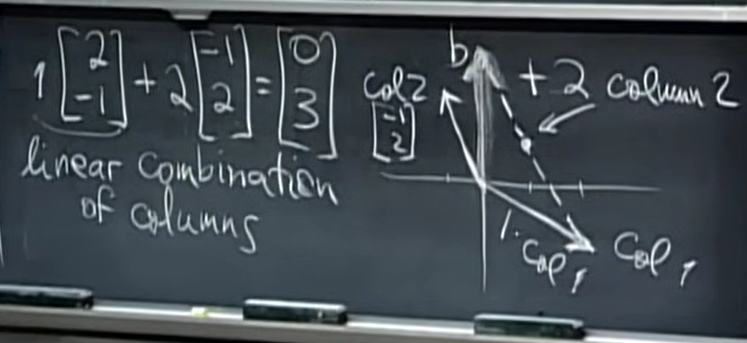 1 [2 -1] + 2 [-1 2] = [0 3]
linear combination
of columns
b
+2 column 2
col 2
[-1 2]
1. col 1
col 1